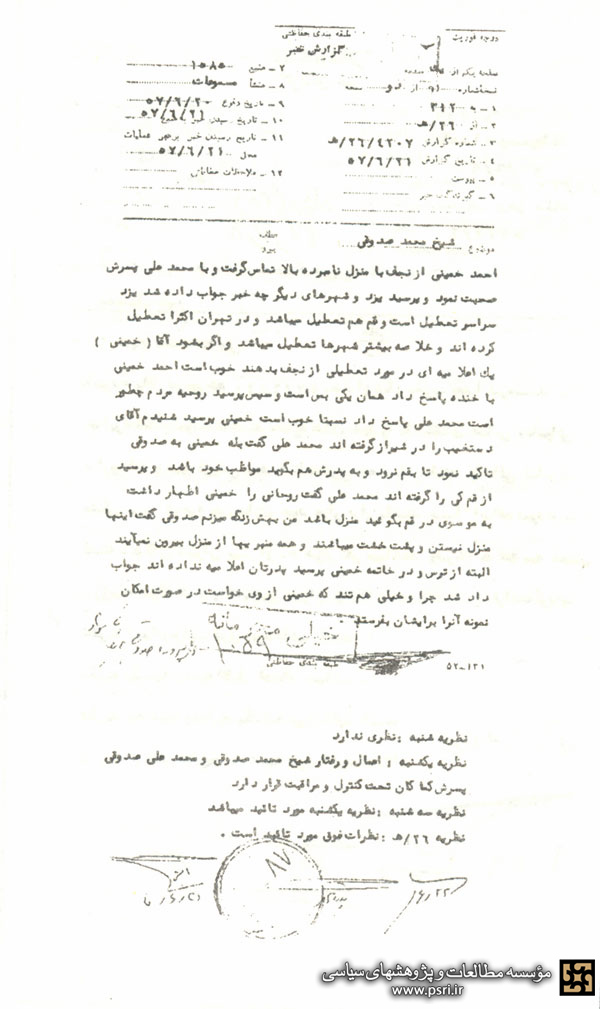 درجه فوریت
طبقه بندی حفاظتی
گزارش خبر
صفحه یکم از
نسخه شماره از دو
۱ـ به ۳۱۲
۲ـ از ۲۶/ه
۳ـ شماره گزارش ۲۶/۴۲۰۷/ه
۴ـ تاریخ گزارش ۵۷/۶/۲۱
۵ـ پیوست
۶ـ گیرندگان خبر
۷ـ منبع ۱۰۸۵
۸ـ منشأ مسموعات
۹ـ تاریخ وقوع ۵۷/۶/۲۰
۱۰ـ تاریخ رسیدن خبر به منبع ۵۷/۶/۲۱
۱۱ـ تاریخ رسیدن خبر برهبر عملیات
محل ۵۷/۶/۲۱
۱۲ـ ملاحظات حفاظتی
موضوع شیخ محمد صدوقی
عطف
پیرو
احمد خمینی از نجف با منزل نامبرده بالا تماس گرفت و با محمد علی پسرش
صحبت نمود و پرسید یزد و شهرهای دیگر چه خبر جواب داده شد یزد
سراسر تعطیل است و قم هم تعطیل میباشد و در تهران اکثرا تعطیل
کرده اند و خلاصه بیشتر شهرها تعطیل میباشد و اگر بشود آقا ( خمینی )
یك اعلامیه ای در مورد تعطیلی از نجف بدهند خوب است احمد خمینی
با خنده پاسخ داد همان یکی بس است و سپس پرسید روحیه مردم چطور
است محمد علی پاسخ داد نسبتا خوب است خمینی پرسید شنیدم آقای
دستغیب را در شیراز گرفته اند محمد علی گفت بله خمینی به صدوقی
تاکید نمود تا بقم نرود و به پدرش هم بگوید مواظب خود باشد و پرسید
از قم کی را گرفته اند محمد علی گفت روحانی را خمینی اظهار داشت
به موسوی در قم بگوئید منزل باشد من بهش زنگ میزنم صدوقی گفت اینها
منزل نیستن و پشت خشت میباشند و همه منبریها از منزل بیرون نمیآیند
البته از ترس و در خاتمه خمینی پرسید پدرتان اعلامیه نداده اند جواب
داد شد چرا و خیلی هم تند که خمینی از وی خواست در صورت امکان
نمونه آنرا برایشان بفرستد .
خیلی محرمانه
۱۰۵۹
طبقه بندی حفاظتی
۵۲-۱۳۱
نظریه شنبه : نظری ندارد
نظریه یکشنبه : اعمال و رفتار شیخ محمد صدوقی و محمد علی صدوقی
پسرش کماکان تحت کنترل و مراقبت قرار دارد
نظریه سه شنبه : نظریه یکشنبه مورد تائید میباشد
نظریه ۲۶/ه : نظرات فوق مورد تائید است .
۸۷
مؤسسه مطالعات و پژوهشهای سیاسی
www.psri.ir